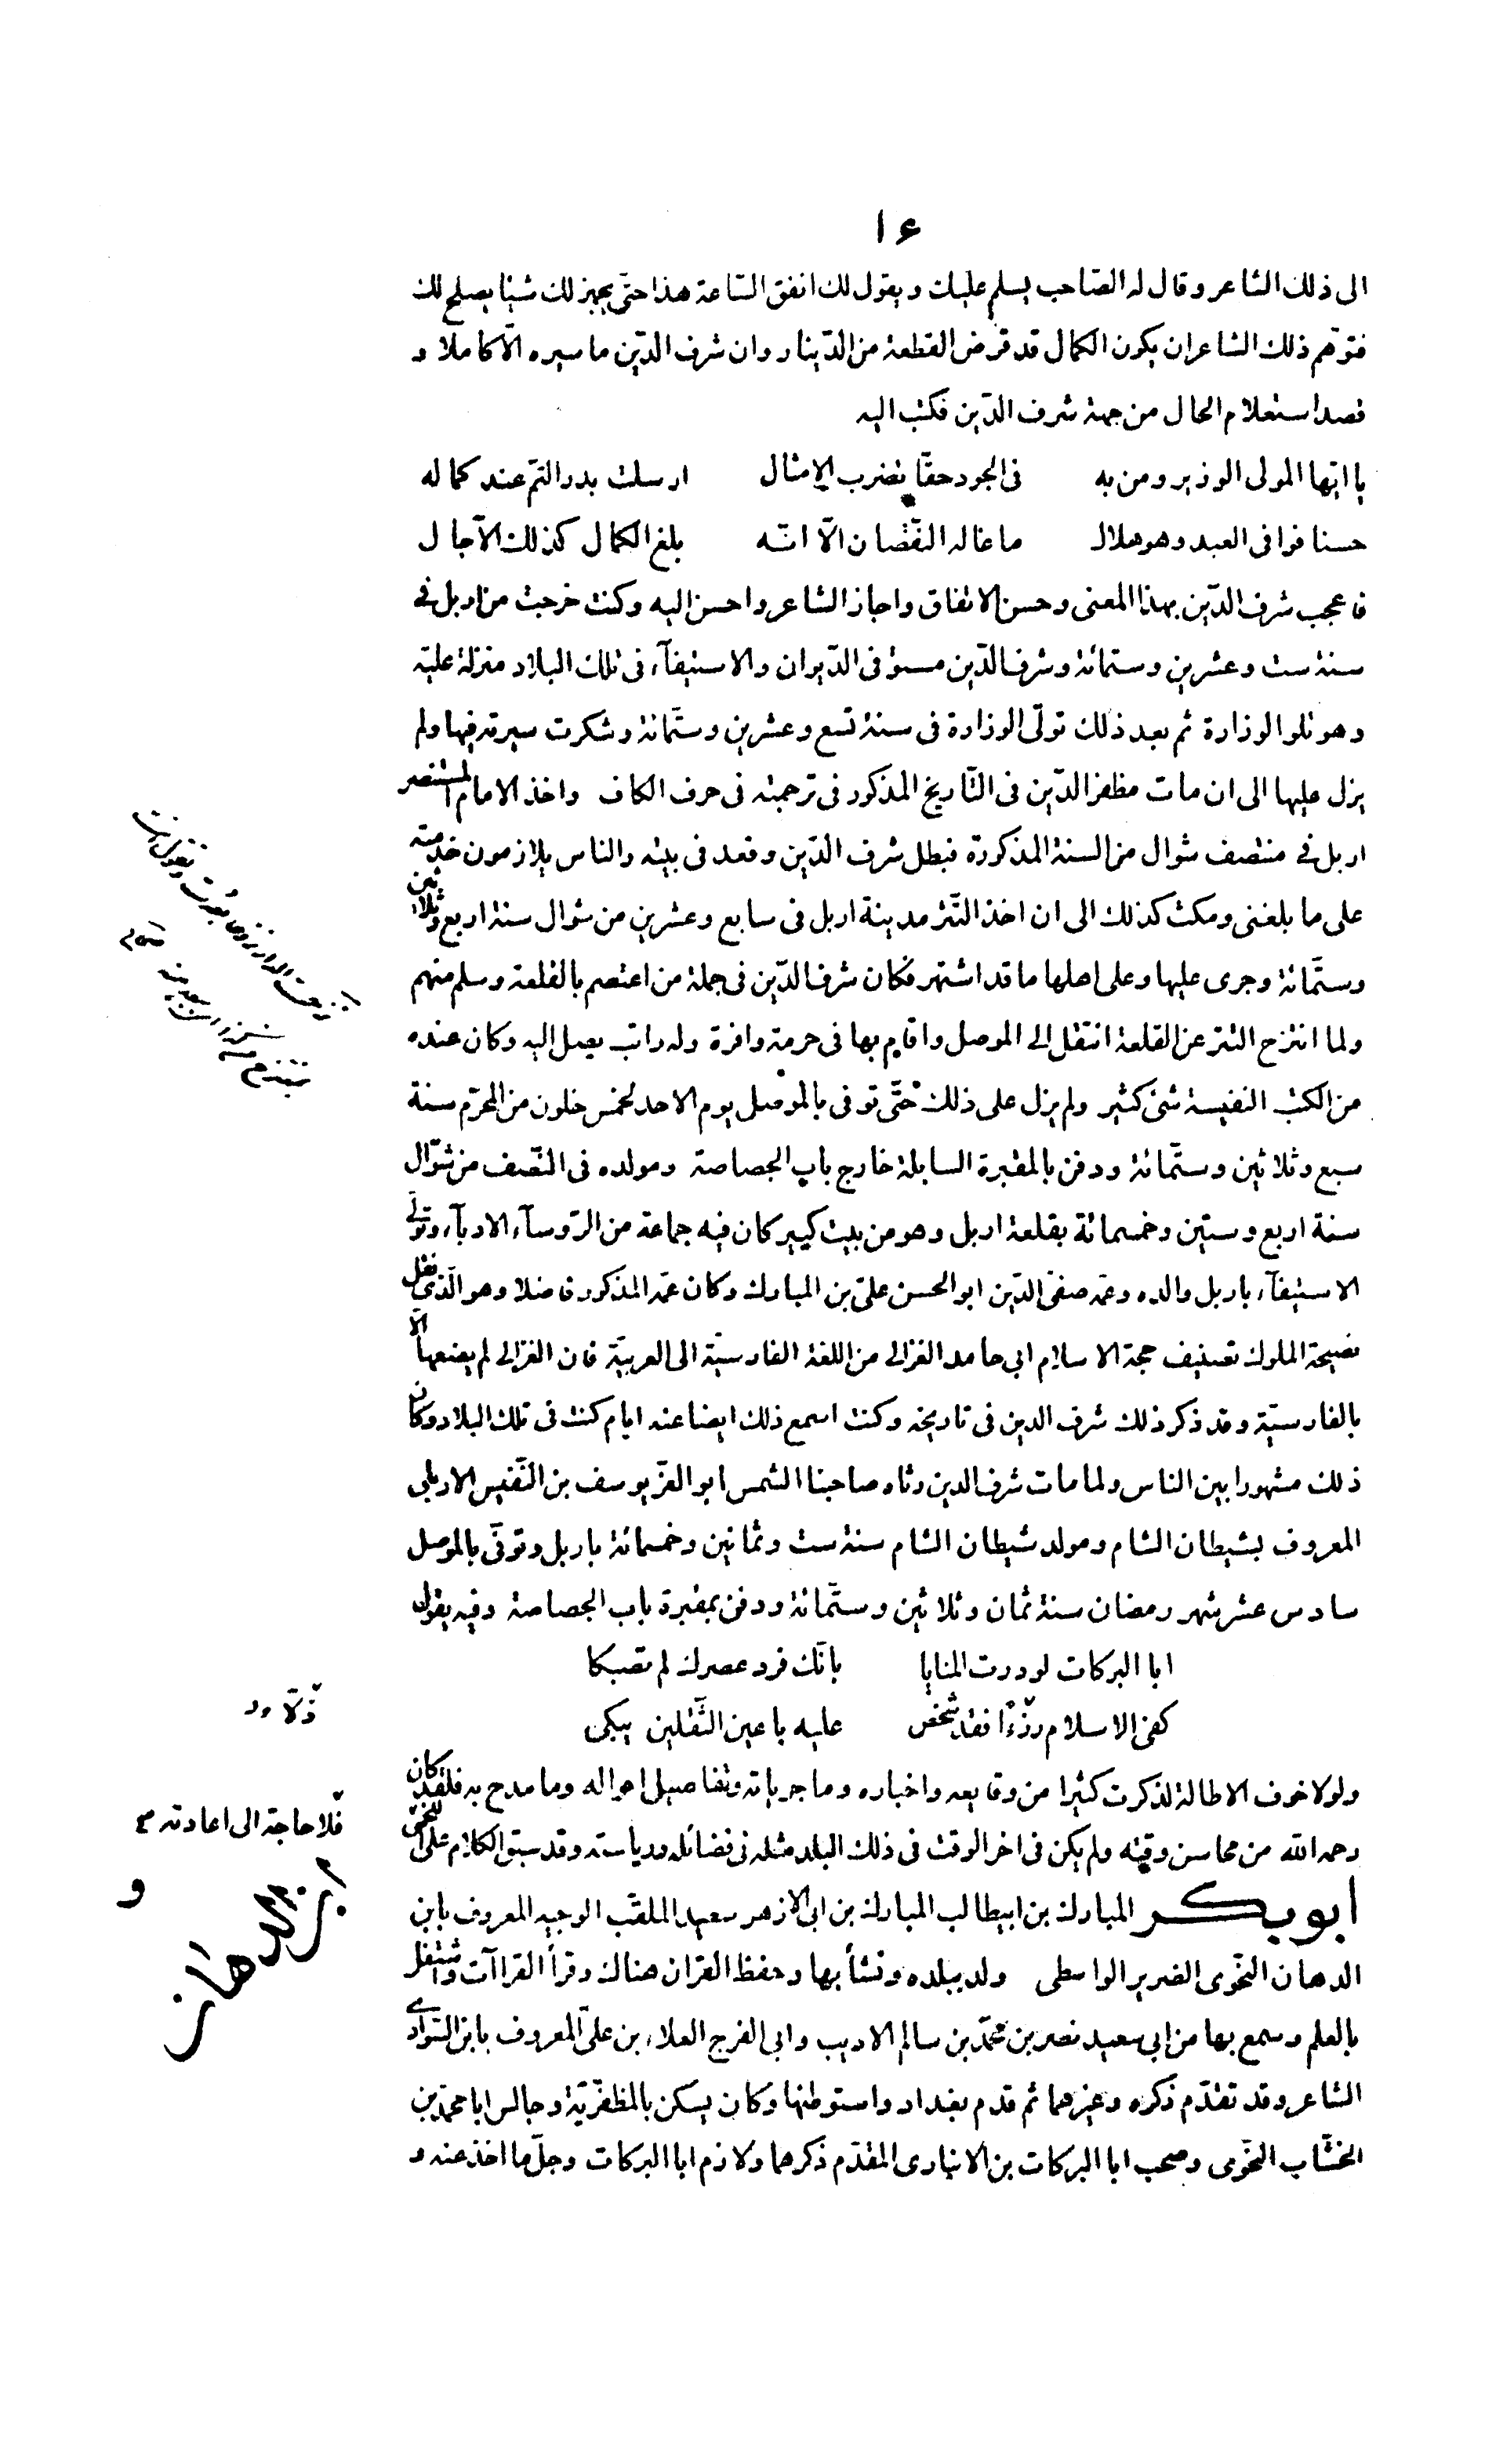 ١٤
الى ذلك الشاعر وقال له الصّاحب يسلم عليك ويقول لك انفق السّاعة هذا حتّى يجهز لك شيئا يصلح لك
فتوهّم ذلك الشاعر ان يكون الكمال قد قرض القطعة من الدّينار وان شرف الدّين ما سيره الّا كاملا و
قصد استعلام الحال من جهة شرف الدّين فكتب اليه
يا ايّها المولى الوزير ومن به في الجود حقّا يضرب الامثال ارسلت بدر التمّ عند كماله
حسنا فوافى العبد وهو هلال ما غاله النقصان الّا انّه بلغ الكمال كذلك الآجال
فاعجب شرف الدّين بهذا المعنى وحسن الاتفاق واجاز الشاعر واحسن اليه وكنت خرجت من اربل في
سنة ست وعشرين وستمائة وشرف الدّين مستوفى الدّيوان والاستيفآء فى تلك البلاد منزلة عليّة
وهو تلو الوزارة ثم بعد ذلك تولّى الوزارة فى سنة تسع وعشرين وستّمائة وشكرت سيرته فيها ولم
يزل عليها الى ان مات مظفر الدّين فى التّاريخ المذكور فى ترجمته فى حرف الكاف واخذ الامام المستنصر
اربل في منتصف شوال من السنة المذكورة فبطل شرف الدّين وقعد فى بيته والناس يلازمون خدمته
على ما بلغنى ومكث كذلك الى ان اخذ التّتر مدينة اربل فى سابع وعشرين من شوال سنة اربع وثلاثين
وستّمائة وجرى عليها وعلى اهلها ما قد اشتهر فكان شرف الدّين فى جملة من اعتصم بالقلعة وسلم منهم
ولما انتزح التتر عن القلعة انتقل الى الموصل واقام بها فى حرمة وافرة وله راتب يصل اليه وكان عنده
من الكتب النفيسة شئ كثير ولم يزل على ذلك حتّى توفى بالموصل يوم الاحد لخمس خلون من المحرّم سنة
سبع وثلاثين وستّمائة ودفن بالمقبرة السابلة خارج باب الجصاصة ومولده فى النّصف من شوّال
سنة اربع وستين وخمسمائة بقلعة اربل وهو من بيت كبير كان فيه جماعة من الرّوسآء الادبآء وتولّى
الاستيفآء باربل والده وعمّه صفىّ الدّين ابو الحسن علىّ بن المبارك وكان عمّه المذكور فاضلا وهو الّذى نقل
نصيحة الملوك تصنيف حجة الاسلام ابى حامد الغزالى من اللغة الفارسيّة الى العربيّة فان الغزالى لم يضعها الّا
بالفارسيّة وقد ذكر ذلك شرف الدين فى تاريخه وكنت اسمع ذلك ايضا عنه ايام كنت فى تلك البلاد وكان
ذلك مشهورا بين الناس ولما مات شرف الدين رثاه صاحبنا الشمس ابو العزّ يوسف بن النّفيس الاربلى
المعروف بشيطان الشام ومولد شيطان الشام سنة ست وثمانين وخمسمائة باربل وتوفّى بالموصل
سادس عشر شهر رمضان سنة ثمان وثلاثين وستّمائة ودفن بمقبرة باب الجصاصة وفيه يقول
ابا البركات لو درت المنايا بانّك فرد عصرك لم تصبكا
كفى الاسلام رزءًا فقد شخص عليه باعين الثّقلين يبكى
ولولا خوف الاطالة لذكرت كثيرا من وقايعه واخباره وماجرياته وتفاصيل احواله وما مدح به فلقد كان
رحمه الله من محاسن وقته ولم يكن فى اخر الوقت فى ذلك البلد مثله فى فضائله ورياسته وقد سبق الكلام على اللخمى
فلا حاجة الى اعادته
ابن الدهان
ابوبكر المبارك بن ابيطالب المبارك بن ابى الازهر سعيد الملقّب الوجيه المعروف بابن
الدهان النّحوى الضرير الواسطى ولد ببلده ونشأ بها وحفظ القران هناك وقرأ القراآت واشتغل
بالعلم وسمع بها من ابى سعيد نصر بن محمّد بن سالم الاديب وابى الفرج العلاء بن علىّ المعروف بابن السّوادى
الشاعر وقد تقدّم ذكره وغيرهما ثم قدم بغداد واستوطنها وكان يسكن بالمظفّريّة وجالس ابا محمّد بن
الخشّاب النّحوى وصحب ابا البركات بن الانبارى المقدّم ذكرهما ولازم ابا البركات وجلّ ما اخذ عنه و